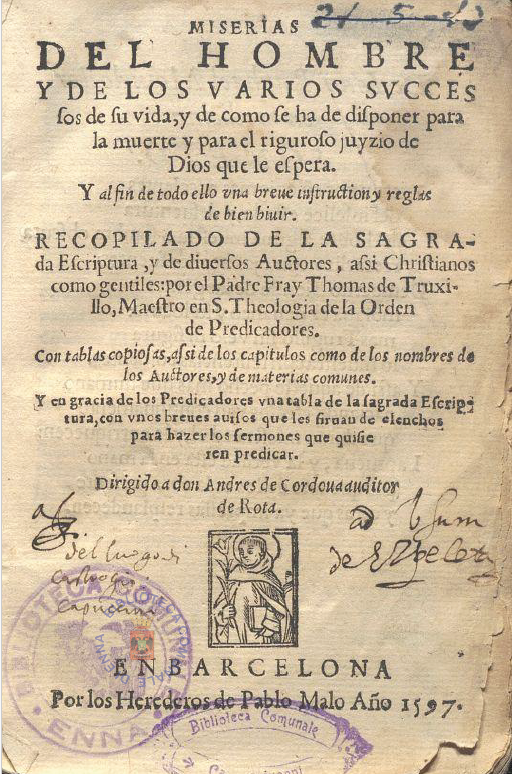 MISERIAS
DEL HOMBRE
Y DE LOS VARIOS SVCCES
ſos de ſu vida, y de como ſe ha de diſponer para
la muerte y para el riguroſo juyzio de
Dios que le eſpera.
Y al fin de todo ello vna breue inſtruction y reglas
de bien biuir.
RECOPILADO DE LA SAGRA-
da Eſcriptura, y de diuerſos Auctores, aſsi Chriſtianos
como gentiles: por el Padre Fray Thomas de Truxi-
llo, Maeſtro en S. Theologia de la Orden
de Predicadores.
Con tablas copioſas, aſsi de los capitulos como de los nombres de
los Auctores, y de materias comunes.
Y en gracia de los Predicadores vna tabla de la ſagrada Eſcrip-
tura, con vnos breues auiſos que les ſiruan de elenchos
para hazer los ſermones que quiſie
ren predicar.
Dirigido a don Andres de Cordoua auditor
de Rota.
ad uſum
del luogo di
EN BARCELONA
Por los Herederos de Pablo Malo Año 1597.
BIBLIOTECA COMUNALE
ENNA
Biblioteca Comunale